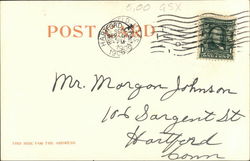 6.00 GSX
POST CARD
HARTFORD
Mr. Morgan Johnson
106 Sargent St
Hartford
Conn
THIS SIDE FOR THE ADDRESS